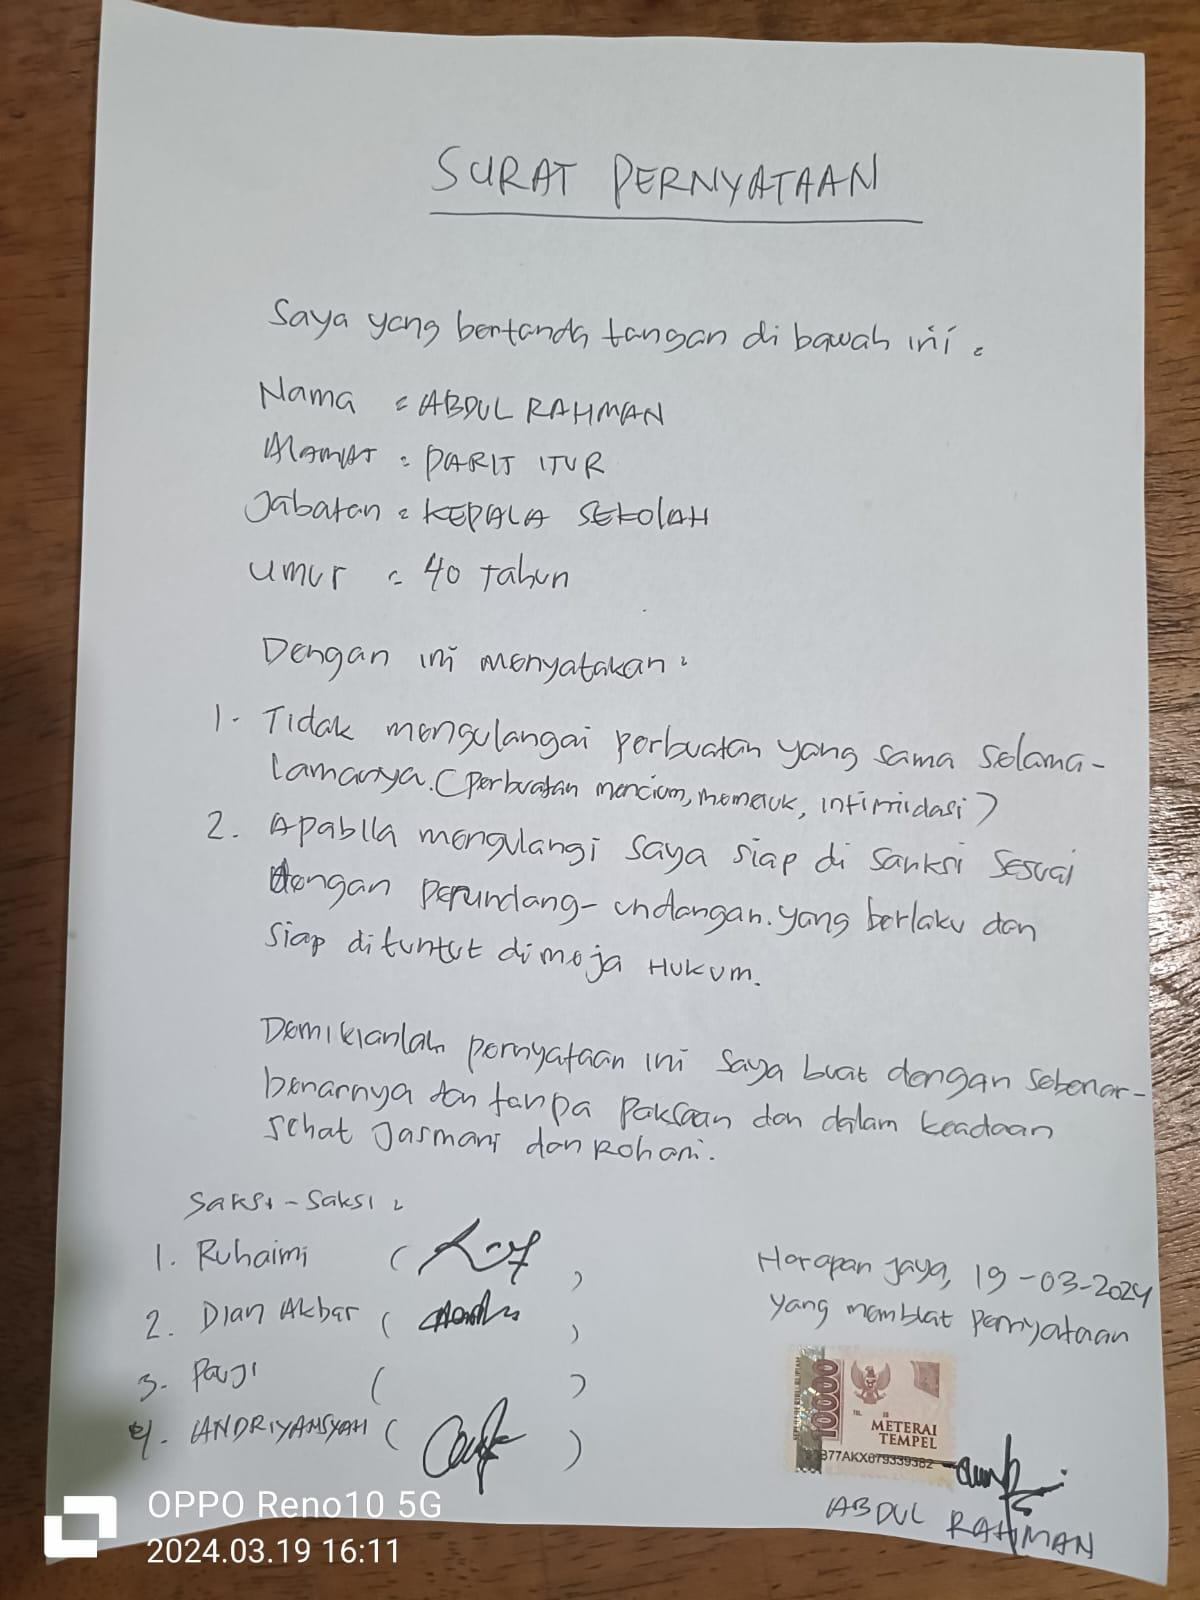 SURAT PERNYATAAN
Saya yang bertanda tangan di bawah ini :
Nama : ABDUL RAHMAN
Alamat : PARIT ITUR
Jabatan : KEPALA SEKOLAH
Umur : 40 Tahun
Dengan ini menyatakan :
1. Tidak mengulangai perbuatan yang sama selama-
lamanya. (perbuatan mencium, memeluk, intimidasi)
2. Apabila mengulangi saya siap di sanksi sesuai
dengan perundang-undangan. yang berlaku dan
siap di tuntut di meja Hukum.
Demikianlah pernyataan ini saya buat dengan sebenar-
benarnya dan tanpa paksaan dan dalam keadaan
sehat Jasmani dan Rohani.
Saksi-Saksi :
1. Ruhaimi ( ),
2. Dian Akbar ( ),
3. Pauji ( )
4. ANDRIYANSYAH ( )
Harapan Jaya, 19-03-2024
yang membuat pernyataan
10000
METERAI
TEMPEL
ABDUL RAHMAN
OPPO Reno10 5G
2024.03.19 16:11